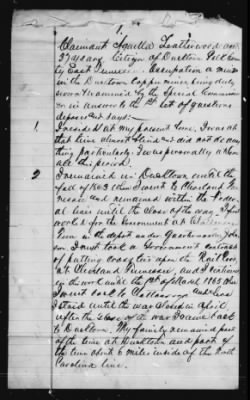 1.
Claimant Aquilla Leatherwood aged
37 years Citizen of Ducktown Polk Coun
ty East Tennessee. Occupation a miner
in the Ducktown Copper mines, being duly
sworn & examined by the Special Commissioner
in answer to the 1st set of questions
deposes and says:
1 I resided at my present home, I was at
that time almost blind and did not do any
thing particular. I was personally at home
all this period.
2 I remained in Ducktown until the
fall of 1863 then I went to Cleveland Ten
nessee and remained within the Feder
al lines until the close of the war. I first
worked for the Government at
Tenn in the depot under
son I next took a Government contract
of putting cross ties upon the Rail Road
at Cleveland Tennessee, and I continued
in this work until the 1st of March 1865 then
I went back to Chattanooga and
staid until the war closed in April
after the close of the war I came back
to Ducktown. My family remained part
of the time at Ducktown and part of
the time about 6 miles inside of the North
Carolina line.